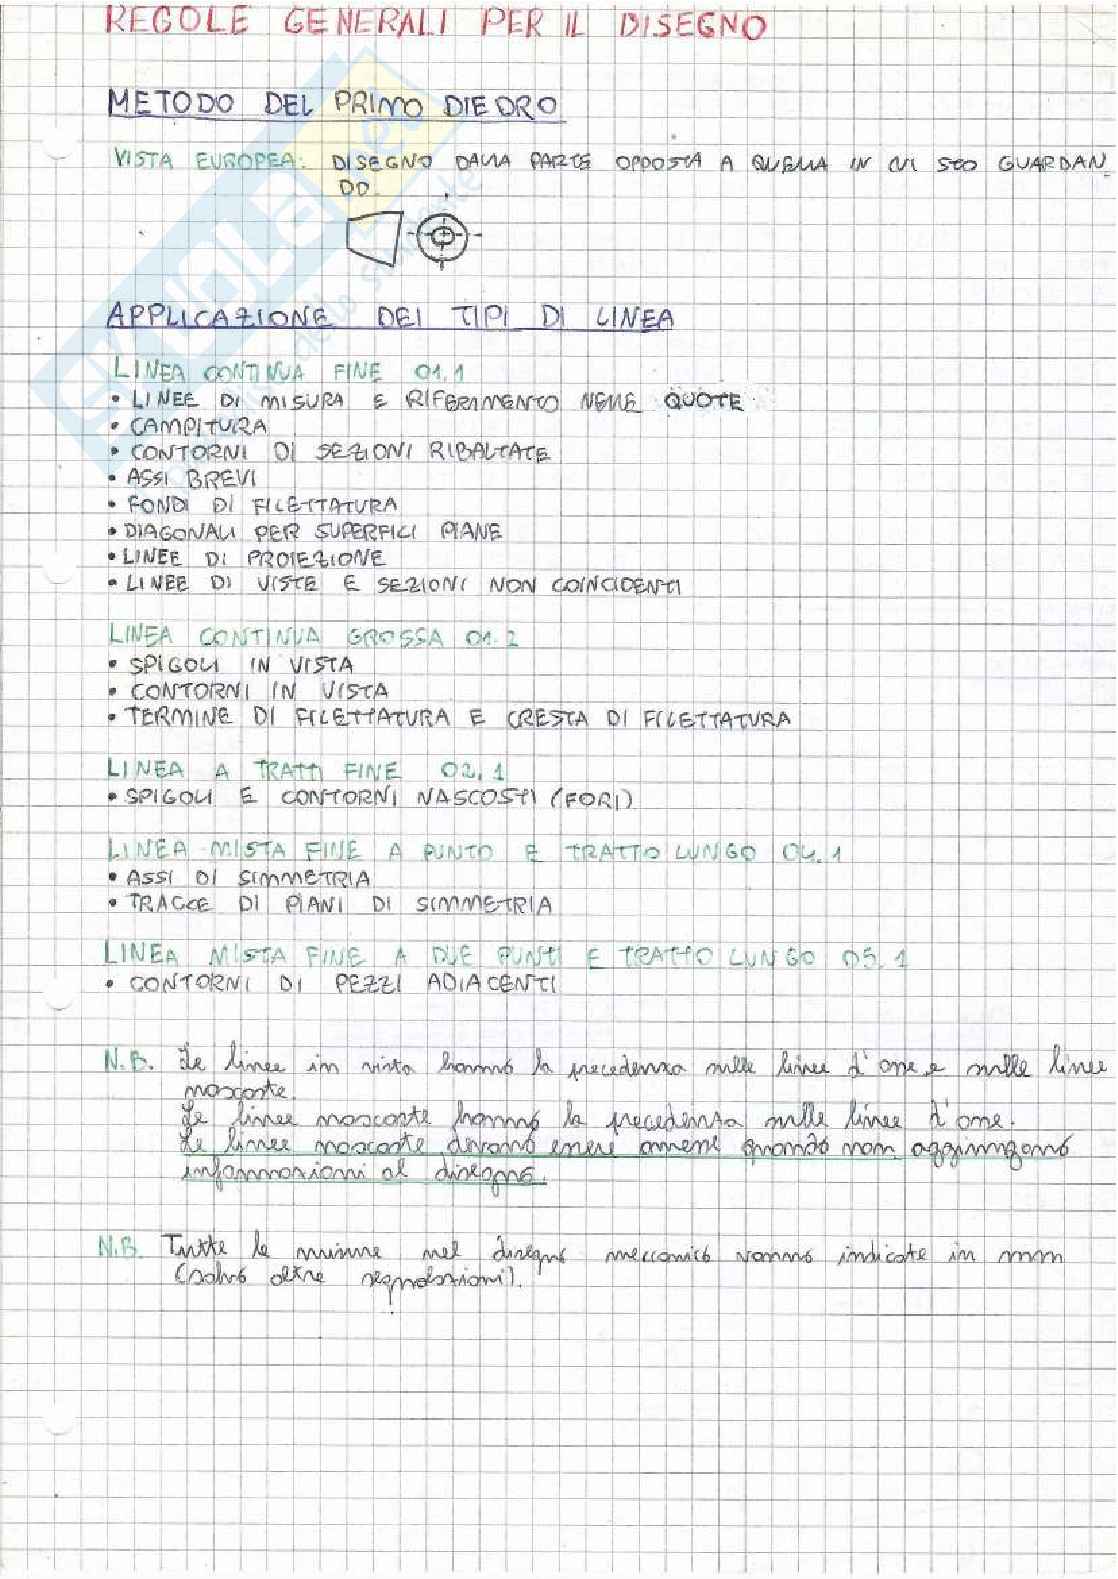 REGOLE GENERALI PER IL DISEGNO
METODO DEL PRIMO DIEDRO
VISTA EUROPEA: DISEGNO DALLA PARTE OPPOSTA A QUELLA IN CUI STO GUARDAN
DO.
APPLICAZIONE DEI TIPI DI LINEA
LINEA CONTINUA FINE 01.1
• LINEE DI MISURA E RIFERIMENTO NELLE QUOTE
• CAMPITURA
• CONTORNI DI SEZIONI RIBALTATE
• ASSI BREVI
• FONDI DI FILETTATURA
• DIAGONALI PER SUPERFICI PIANE
• LINEE DI PROIEZIONE
• LINEE DI VISTE E SEZIONI NON COINCIDENTI
LINEA CONTINUA GROSSA 01.2
• SPIGOLI IN VISTA
• CONTORNI IN VISTA
• TERMINE DI FILETTATURA E CRESTA DI FILETTATURA
LINEA A TRATTI FINE 02.1
• SPIGOLI E CONTORNI NASCOSTI (FORI)
LINEA MISTA FINE A PUNTO E TRATTO LUNGO 04.1
• ASSI DI SIMMETRIA
• TRACCE DI PIANI DI SIMMETRIA
LINEA MISTA FINE A DUE PUNTI E TRATTO LUNGO 05.1
• CONTORNI DI PEZZI ADIACENTI
N.B. Le linee in vista hanno la precedenza sulle linee d'asse e sulle linee
nascoste.
Le linee nascoste hanno la precedenza sulle linee d'asse.
Le linee nascoste devono essere omesse quando non aggiungono
informazioni al disegno.
N.B. Tutte le misure nel disegno meccanico vanno indicate in mm
(salvo altre segnalazioni).